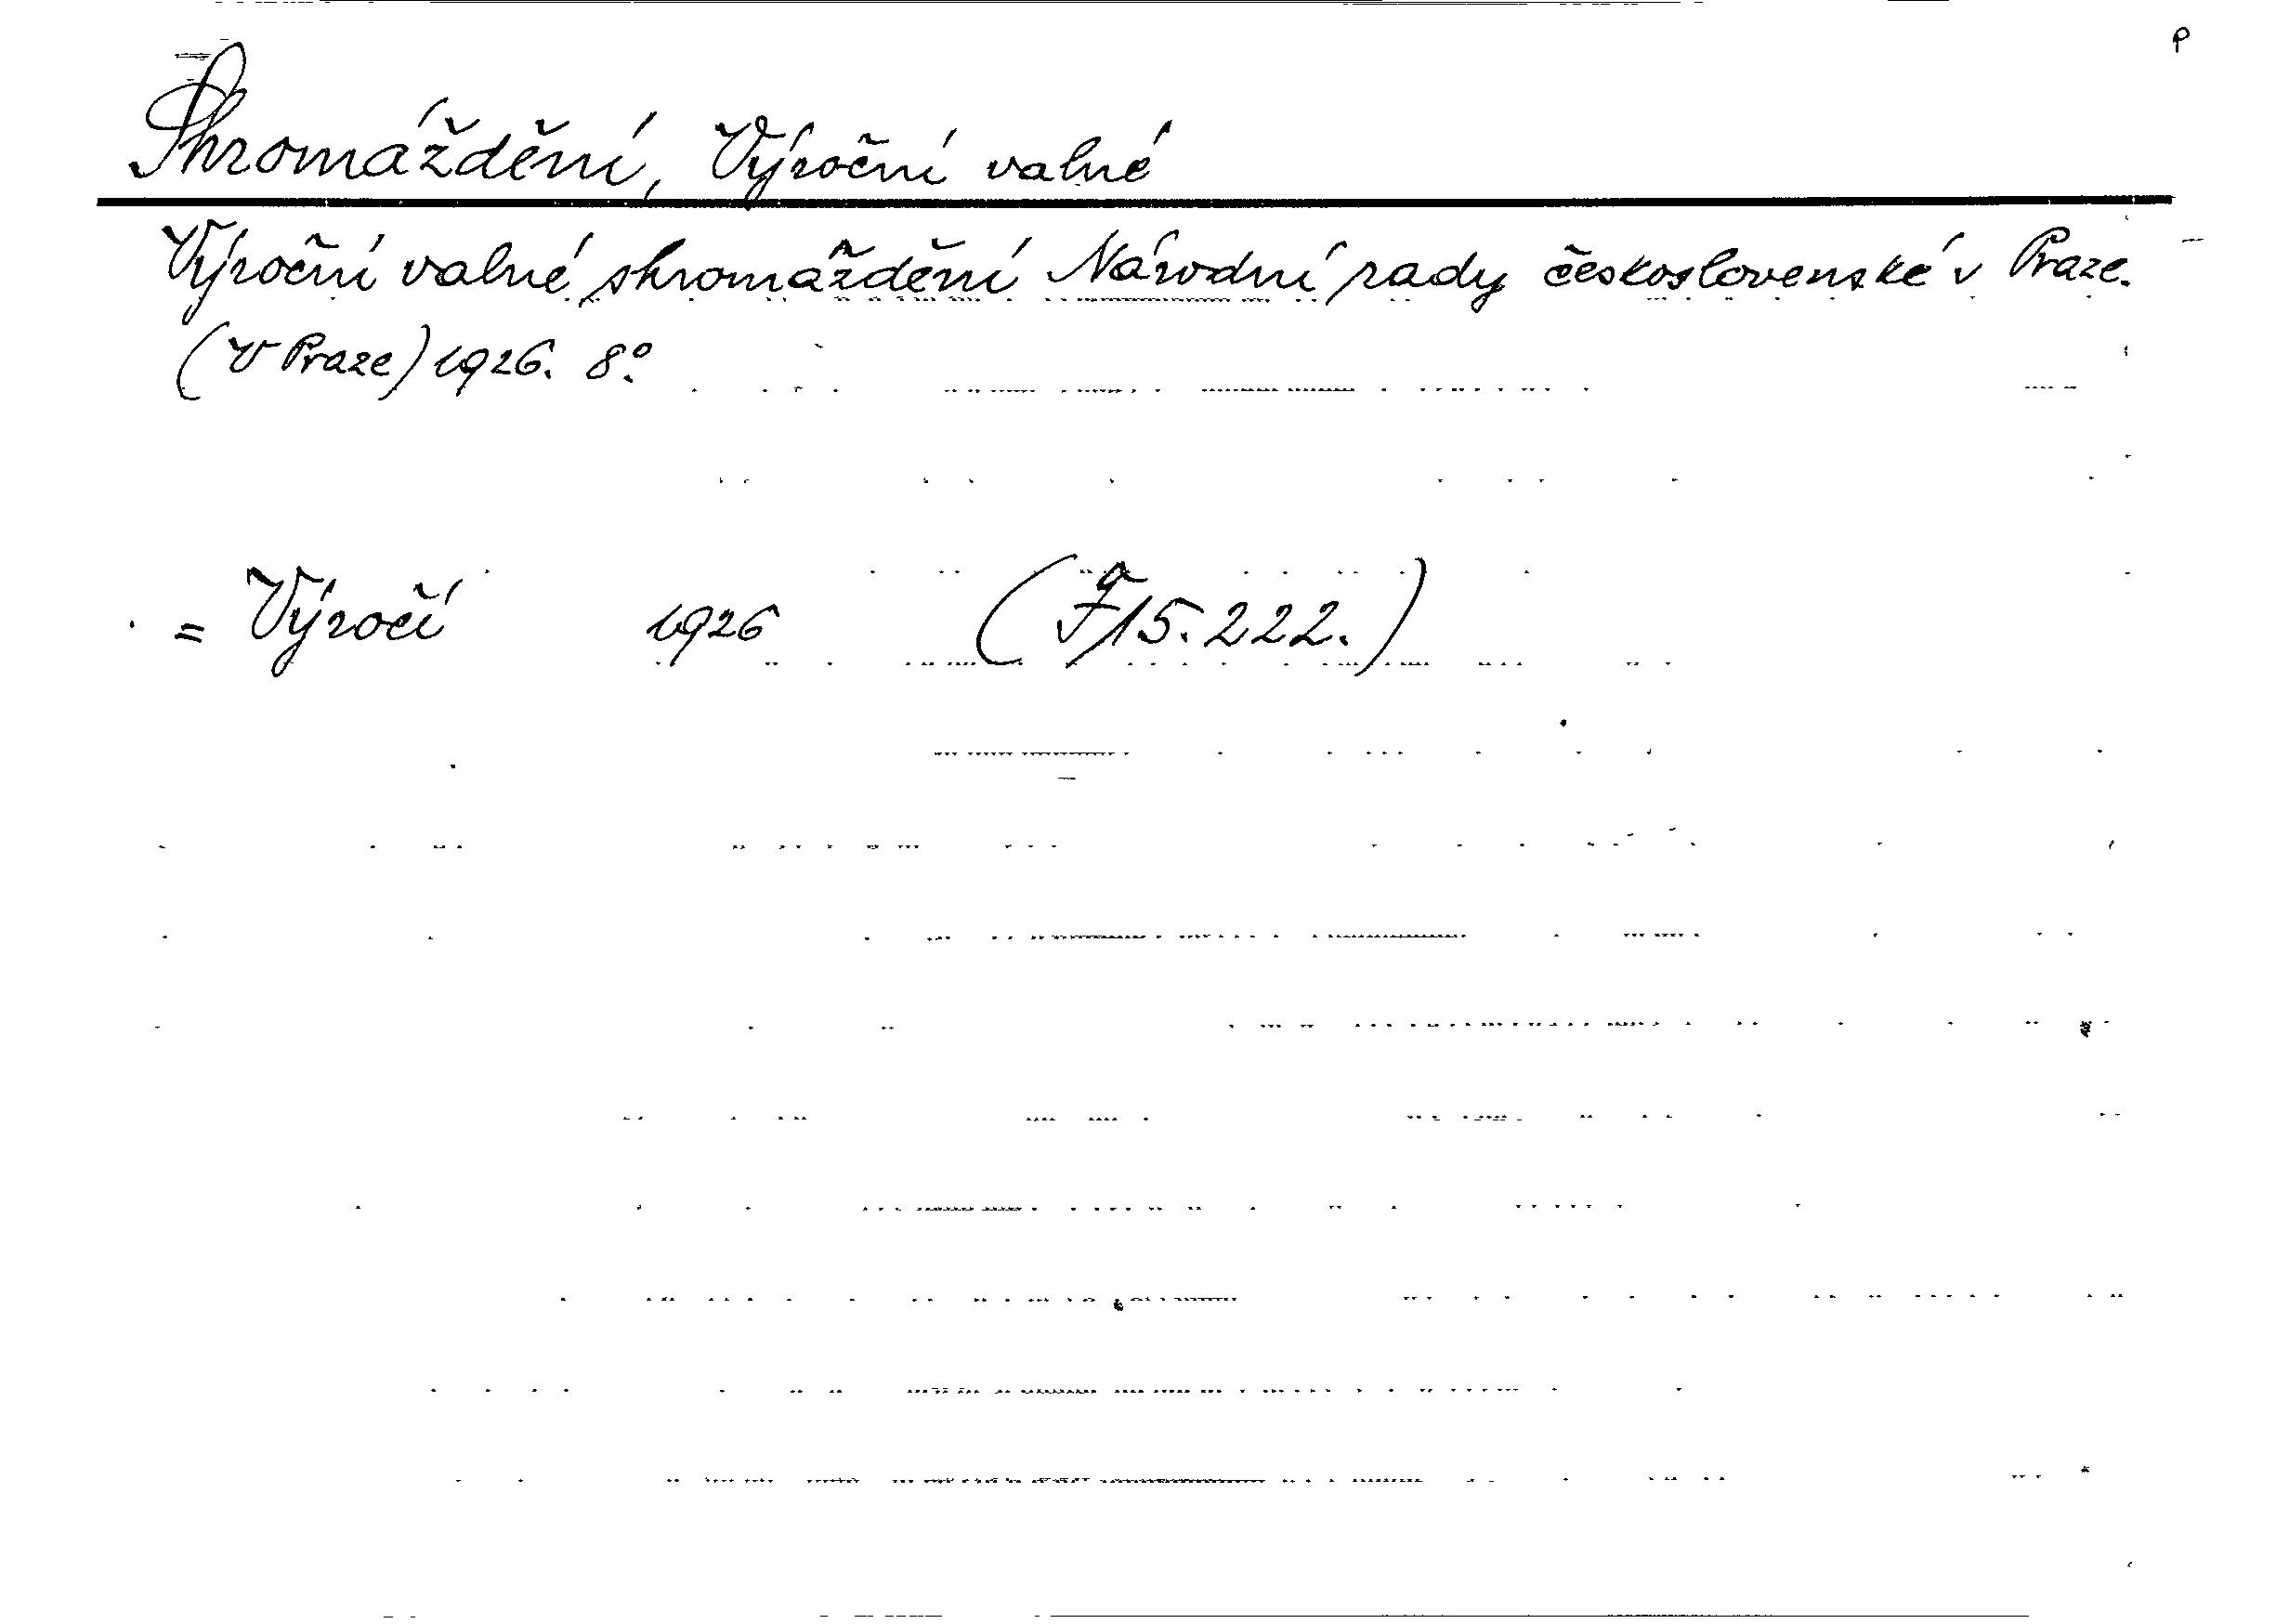 P
Shromáždění, Výroční valné
Výroční valné shromáždění Národní rady československé v Praze.
(V Praze) 1926. 8°.
= Výročí 1926 (F 15.222.)